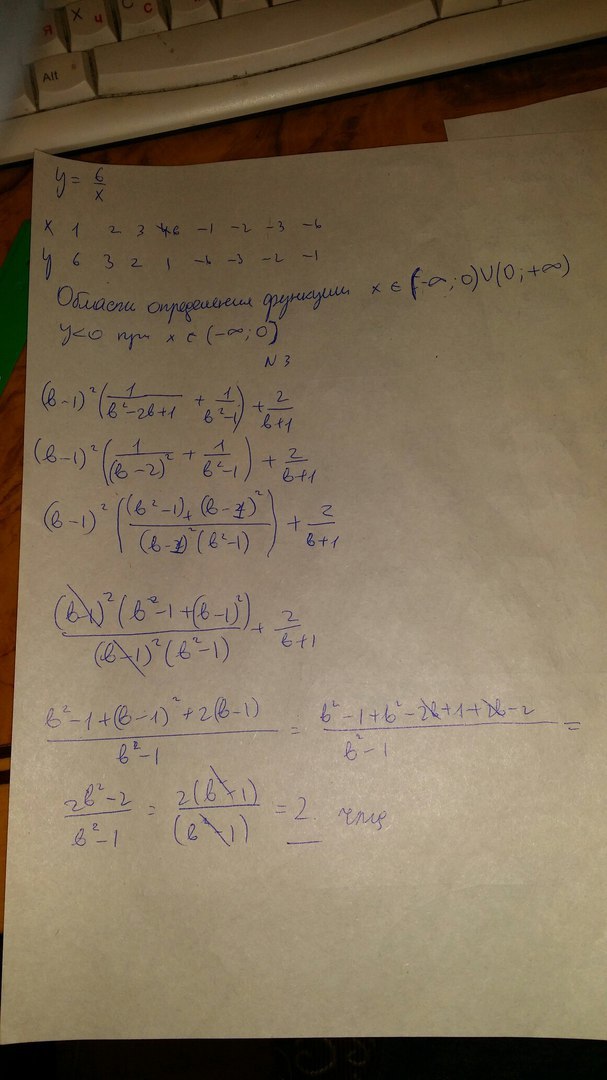 Я Х ч С с
Alt
y = 6/x
x 1 2 3 6 -1 -2 -3 -6
y 6 3 2 1 -6 -3 -2 -1
Область определения функции x ∈ (-∞; 0)∪(0; +∞)
y<0 при x ∈ (-∞; 0)
N 3
(b-1)² (1/(b²-2b+1) + 1/(b²-1)) + 2/(b+1)
(b-1)² (1/(b-2)² + 1/(b²-1)) + 2/(b+1)
(b-1)² (((b²-1) + (b-1)²)/((b-1)² (b²-1))) + 2/(b+1)
((b-1)² (b²-1+(b-1)²))/((b-1)² (b²-1)) + 2/(b+1)
(b²-1+(b-1)²+2(b-1))/(b²-1) = (b²-1+b²-2b+1+2b-2)/(b²-1) =
(2b²-2)/(b²-1) = (2(b²-1))/((b²-1)) = 2. чтд